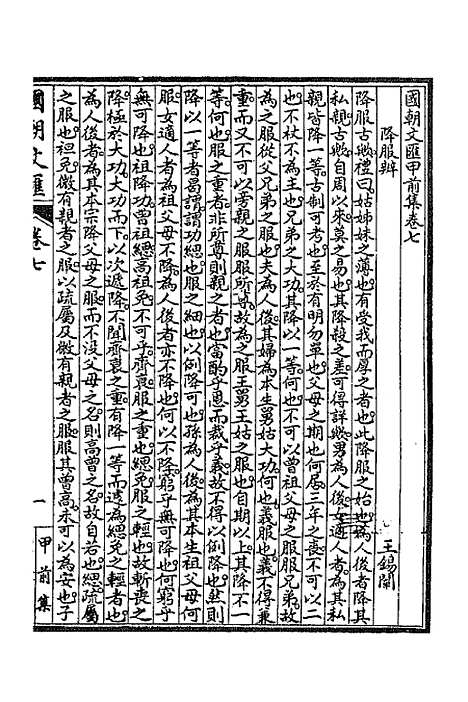 國朝文匯甲前集卷七
降服辨
王錫闡
降服古歟禮曰姑姊妹之薄也有受我而厚之者也此降服之始也為人後者降其
私親古歟自周以來莫之易也其降殺之差可得詳歟男為人後女適人者為其私
親皆降一等古制可考也至於有明勿單也父母之期也何居三年之喪不可以二
也不杖不為主也兄弟之大功其降以一等何也不可以曾祖父母之服服兄弟故
為之服從父兄弟之服也夫為人後其婦為本生舅姑大功何也義服也義不得兼
重而又不可以旁親之服服所尊故為之服王舅王姑之服也自期以上其降不一
等何也服之重者非所尊則親之者也當酌乎恩而裁乎義故不得以例降也然則
降以一等者曷謂謂功緦也服之細也以例降可也孫為人後為其本生祖父母
之服女適人者為祖父母不降為人後者亦不降也何以不降窮乎無可降也何窮乎
無可降也祖降功曾祖緦高祖免不可乎齊衰服之重也緦免服之輕也故斬喪之
降極於大功大功而下以次遞降不聞齊衰之重有降一等而遽為緦免之輕者也
為人後者為其本宗降父母之服而不没父母之名則高曾之名故自若也緦疏屬
之服也袒免微有親者之服以疏屬及微有親者之服服其曾高未可以為安也子
國朝文匯
卷七
一
甲前集